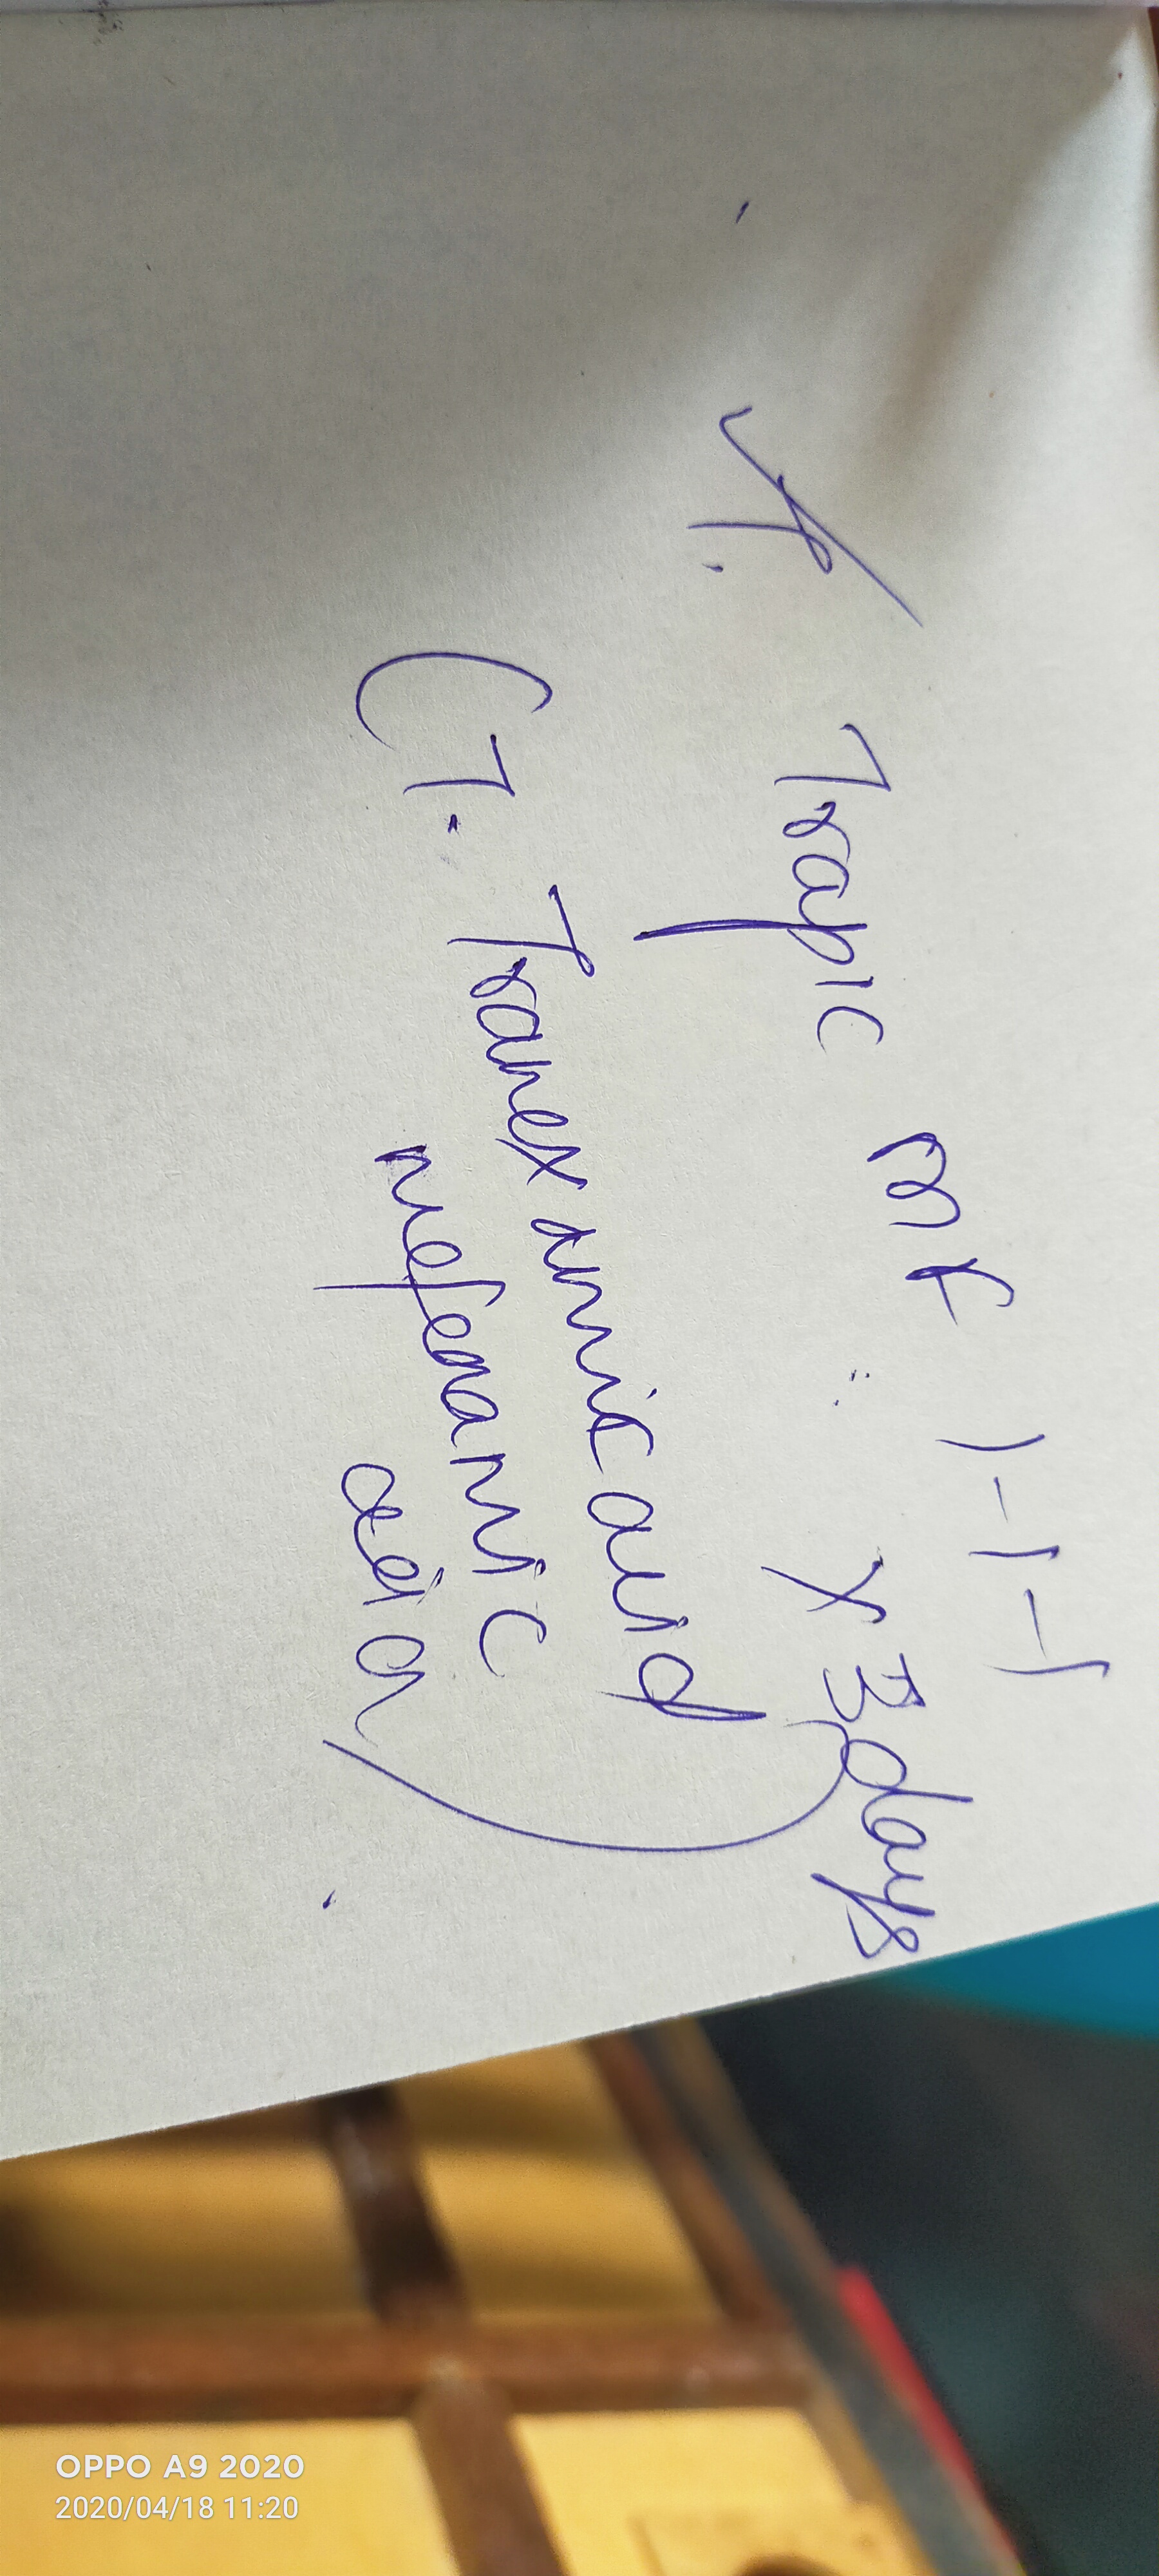 T. Trapic mf 1-1-1
x 3 days
(T. Tranexamic acid
mefenamic
acid)
OPPO A9 2020
2020/04/18 11:20